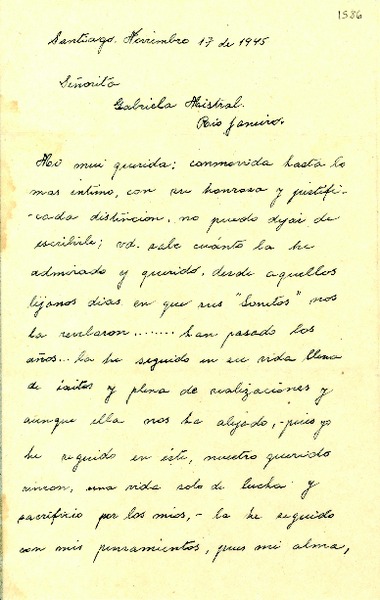 1586
Santiago. Noviembre 17 de 1945
Señorita
Gabriela Mistral.
Rio Janeiro.
Mi mui querida: conmovida hasta lo
mas intimo, con su honrosa y justifi-
-cada distincion, no puedo dejar de
escribirle; vd. sabe cuánto la he
admirado y querido, desde aquellos
lejanos dias en que sus "Sonetos" nos
la revelaron........ han pasado los
años... la he seguido en su vida llena
de éxitos y plena de realizaciones y
aunque ella nos ha alejado, -pues yo
he seguido en éste, nuestro querido
rincon, una vida solo de lucha y
sacrifizio por los mios, - la he seguido
con mis pensamientos, pues mi alma,